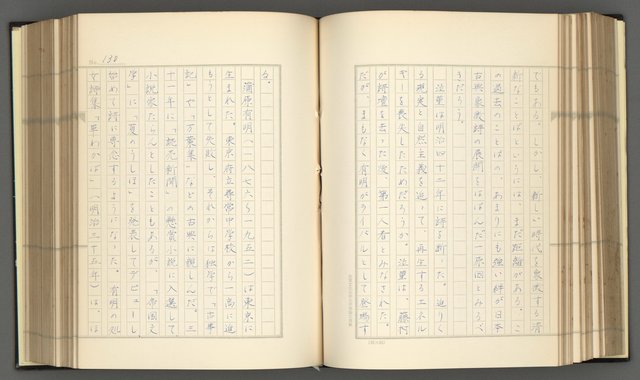 でもある。しかし、新しい時代を象徴する清
新なことばというには、まだ距離がある。こ
の過去のことばの、あまりにも強い絆が日本
古典象徴詩の展開をはばんだ一原因とみるべ
きだろう。
泣菫は明治四十一年に詩を断った。迫りく
る現実と自然主義を追いて、再生するエネル
ギーを喪失したためだろうか。泣菫は、藤村
が詩壇を去った後、第一人者とみなされた。
だが、まもなく有明がライバルとして登場す
No. 138
る。
蒲原有明（一八七六〜一九五二）は東京に
生まれた。東京府立尋常中学校から一高に進
もうとして失敗し、それからは独学で「古事
記」や「万葉集」などの古典に親しんだ。三
十一年に「読売新聞」の懸賞小説に入選して
小説家たらんとしたこともあるが、「帝国文
学」に「夏のうしほ」を発表してデビューし、
始めて詩に専念するようになった。有明の処
女詩集「草わかば」（明治三十五年）は、ほ